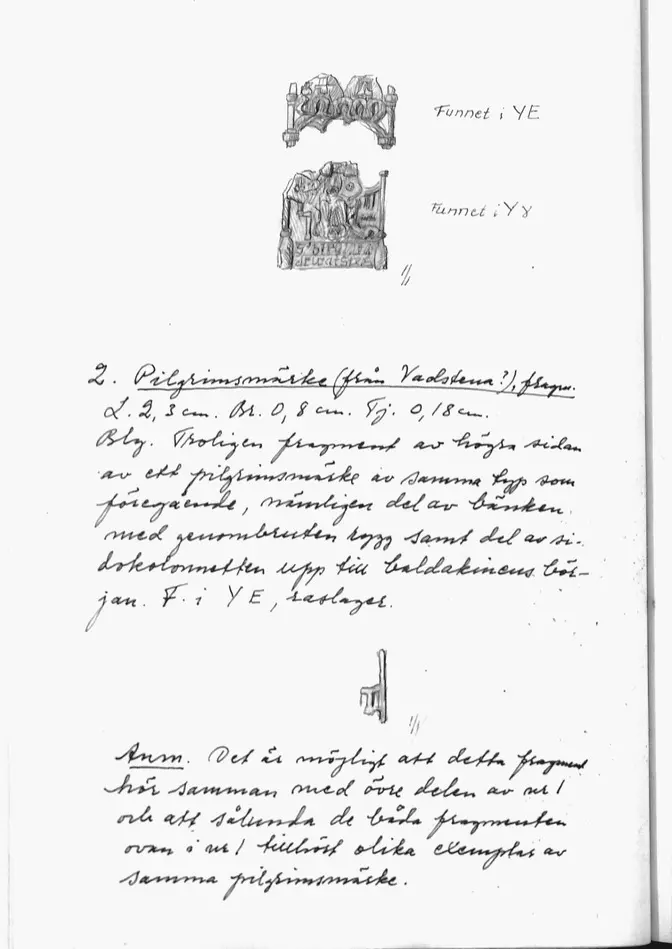 Funnet i YE
Funnet i Y8
1/1
2. Pilgrimsmärke (från Vadstena?), fragm.
L. 2,3 cm. Br. 0,8 cm. Tj. 0,18 cm.
Bly. Troligen fragment av högra sidan
av ett pilgrimsmärke av samma typ som
föregående, nämligen del av bänken
med genombruten rygg samt del av si-
dokolonnetten upp till baldakinens bör-
jan. F. i YE, raslager.
1/1
Anm. Det är möjligt att detta fragment
hör samman med övre delen av nr 1
och att sålunda de båda fragmenten
ovan i nr 1 tillhört olika exemplar av
samma pilgrimsmärke.